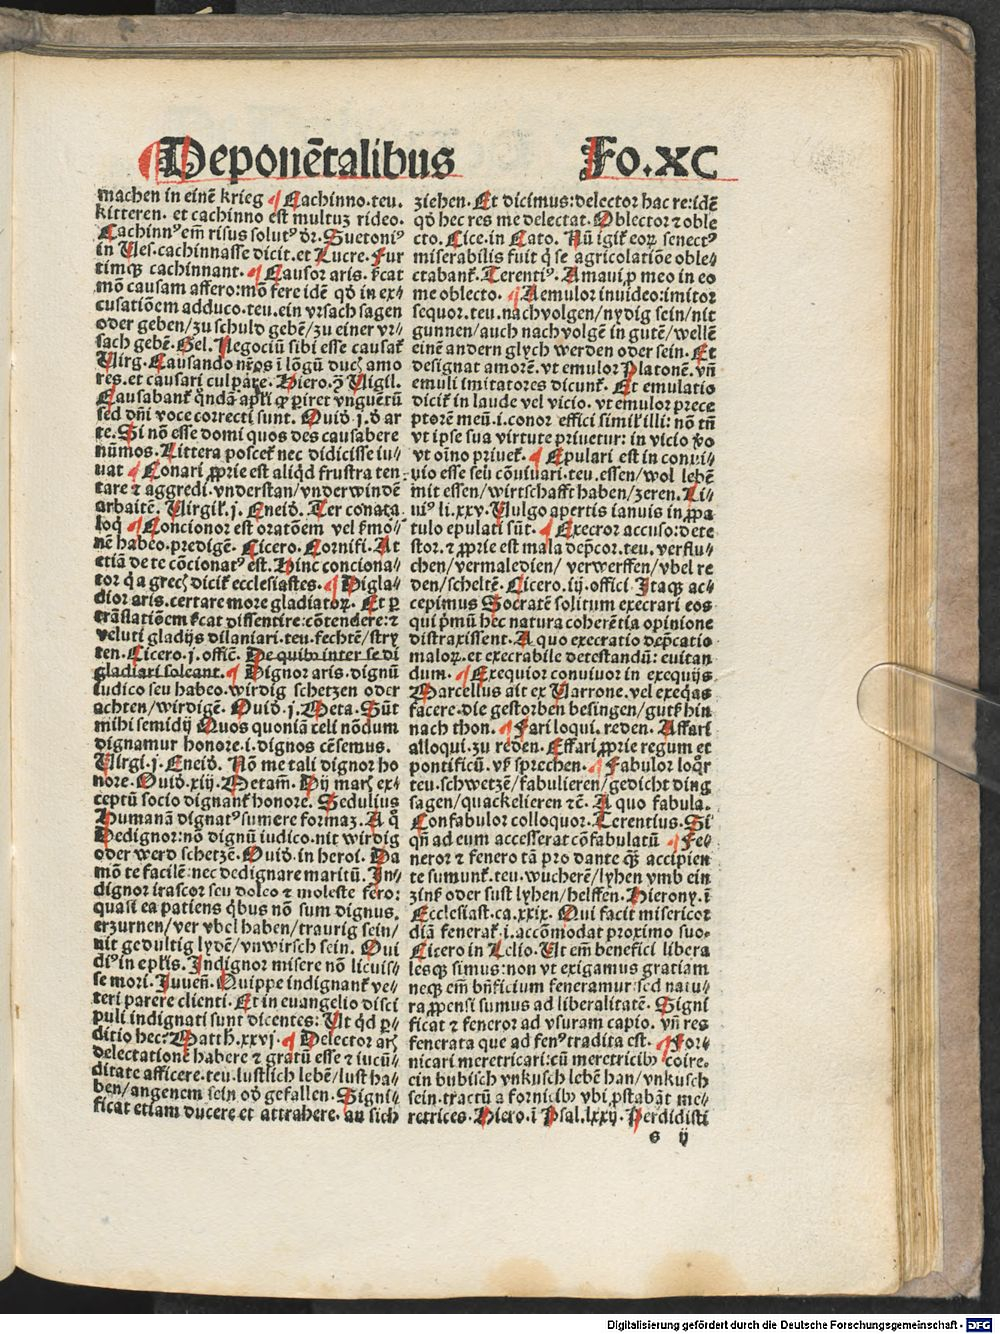 ¶Deponētalibus Fo.XC
machen in einē krieg ¶Cachinno.teu.
kitteren. et cachinno est multuꝫ rideo.
Cachinnꝰ em̄ risus solutꝰ dr̄. Suetoniꝰ
in Ves.cachinnasse dicit.et Lucre. Fur
timqꝫ cachinnant. ¶Causor aris. ſcat
mō causam affero:mō fere idē qđ in ex⸗
cusatiōem adduco.teu.ein vrsach sagen
oder geben/zu schuld gebē/zu einer vr⸗
sach gebē. Gel. Negociū sibi esse causat̄
Virg. Causando nr̄os ī lōgū ducꝭ amo
res.et causari culpare. Hiero. Vigil.
Causabant̄ q̄ndā apl̄i periret vnguētū
sed dn̄i voce correcti sunt. Ouiđ.j.đ ar
te. Si nō esse domi quos des causabere
nūmos. Littera poscet̄ nec didicisse iu⸗
uat ¶Conari ꝓprie est aliqđ frustra ten
tare ⁊ aggredi.vnderstan/vnderwindē
arbaitē. Virgil.j. Eneiđ. Ter conata
loq̄ ¶Concionor est oratōem vel ẜmō⸗
nē habeo.predigē. Cicero. Cornifi. At
etiā de te cōcionatꝰ est. Hinc conciona⸗
tor q̄ a grecꝭ dicit̄ ecclesiastes. ¶Digla⸗
dior aris.certare more gladiatoꝝ. Et ꝑ
trāslatiōem ſcat dissentire:cōtendere:⁊
veluti gladijs dilaniari.teu.fechtē/stry
ten. Cicero.j.offic̄. De quibꝰ inter se di
gladiari soleant. ¶Dignor aris.dignū
iudico seu habeo.wirdig schetzen oder
achten/wirdigē. Ouiđ.j. Meta. Sūt
mihi semidij Quos quoniā celi nōdum
dignamur honore.i.dignos cēsemus.
Virgi.j. Eneiđ. Nō me tali dignor ho
nore. Ouiđ.xiij. Metam̄. Dij marꝭ ex⸗
ceptū socio dignant̄ honore. Sedulius
Humanā dignatꝰ sumere formaꝫ. A q̄
Dedignor:nō dignū iudico.nit wirdig
oder werd schetzē. Ouiđ.in heroi. Da
mō te facilē:nec dedignare maritū. In⸗
dignor irascor seu doleo ⁊ moleste fero:
quasi ea patiens q̄bus nō sum dignus.
erzurnen/ver vbel haben/traurig sein/
nit gedultig lydē/vnwirsch sein. Oui
diꝰ in epl̄is. Indignor misere nō licuis⸗
se mori. Juuen̄. Quippe indignant̄ ve⸗
teri parere clienti. Et in euangelio disci
puli indignati sunt dicentes: Vt qđ ꝑ⸗
ditio hec? Matth.xxvj. ¶Delector arꝭ
delectationē habere ⁊ gratū esse ⁊ iucū⸗
ditate afficere.teu.lustlich lebē/lust ha⸗
ben/angenem sein ođ gefallen. Signi⸗
ficat etiam ducere et attrahere. an sich
ziehen. Et dicimus:delector hac re:idē
qđ hec res me delectat. Oblector ⁊ oble
cto. Cice.in Cato. Nū igit̄ eoꝝ senectꝰ
miserabilis fuit q̄ se agricolatiōe oble⸗
ctabant̄. Terentiꝰ. Amaui ꝓ meo in eo
me oblecto. ¶Aemulor inuideo:imitor
sequor.teu.nachvolgen/nydig sein/nit
gunnen/auch nachvolgē in gutē/wellē
einē andern glych werden oder sein. Et
designat amorē.vt emulor Platonē.vn̄
emuli imitatores dicunt̄. Et emulatio
dicit̄ in laude vel vicio.vt emulor prece
ptorē meū.i.conor effici similꝭ illi: nō tn̄
vt ipse sua virtute priuetur: in vicio ꝟo
vt oīno priuet̄. ¶Epulari est in conui⸗
uio esse seu cōuiuari.teu.essen/wol lebē
mit essen/wirtschafft haben/zeren. Li⸗
uiꝰ li.xxv. Vulgo apertis ianuis in ꝓpa
tulo epulati sūt. ¶Execror accuso:dete
stor.⁊ ꝓprie est mala dep̄cor.teu.verflu⸗
chen/vermaledien/ verwerffen/vbel re
den/scheltē. Cicero.iij.offici. Itaqꝫ ac⸗
cepimus Socratē solitum execrari eos
qui p̄mū hec natura coherētia opinione
distraxissent. A quo execratio dep̄catio
maloꝝ.et execrabile detestandū: euitan
dum. ¶Exequior conviuor in exequijs
Marcellus ait ex Varrone.vel exeq̄as
facere.die gestorben besingen/gutt̄ hin
nach thon. ¶Fari loqui. reden. Affari
alloqui.zu reden. Effari ꝓprie regum et
pontificū. vß sprechen. ¶Fabulor loq̄r
teu.schwetzē/fabulieren/gedicht ding
sagen/quackelieren ⁊c̄. A quo fabula.
Confabulor colloquor. Terentius. Si
qn̄ ad eum accesserat cōfabulatū ¶Fe⸗
neror ⁊ fenero tā pro dante qꝫ accipien
te sumunt̄.teu.wucherē/lyhen vmb ein
zinß oder sust lyhen/helffen. Hierony.ī
Ecclesiast.ca.xxix. Qui facit misericor
diā fenerat̄.i.accōmodat proximo suo.
Cicero in Lelio. Vt em̄ benefici libera
lesqꝫ simus:non vt exigamus gratiam
neqꝫ em̄ bn̄ficium feneramur:sed natu⸗
ra ꝓpensi sumus ad liberalitatē. Signi
ficat ⁊ feneror ad vsuram capio. vn̄ res
fenerata que ad fenꝰ tradita est. ¶For⸗
nicari meretricari:cū meretricibꝰ coire.
ein bubisch vnkusch lebē han/vnkusch
sein.tractū a fornicibꝰ vbi ꝓstabāt me⸗
retrices. Hiero.ī Psal.lxxij. Perdidisti
s ij
Digitalisierung gefördert durch die Deutsche Forschungsgemeinschaft - DFG